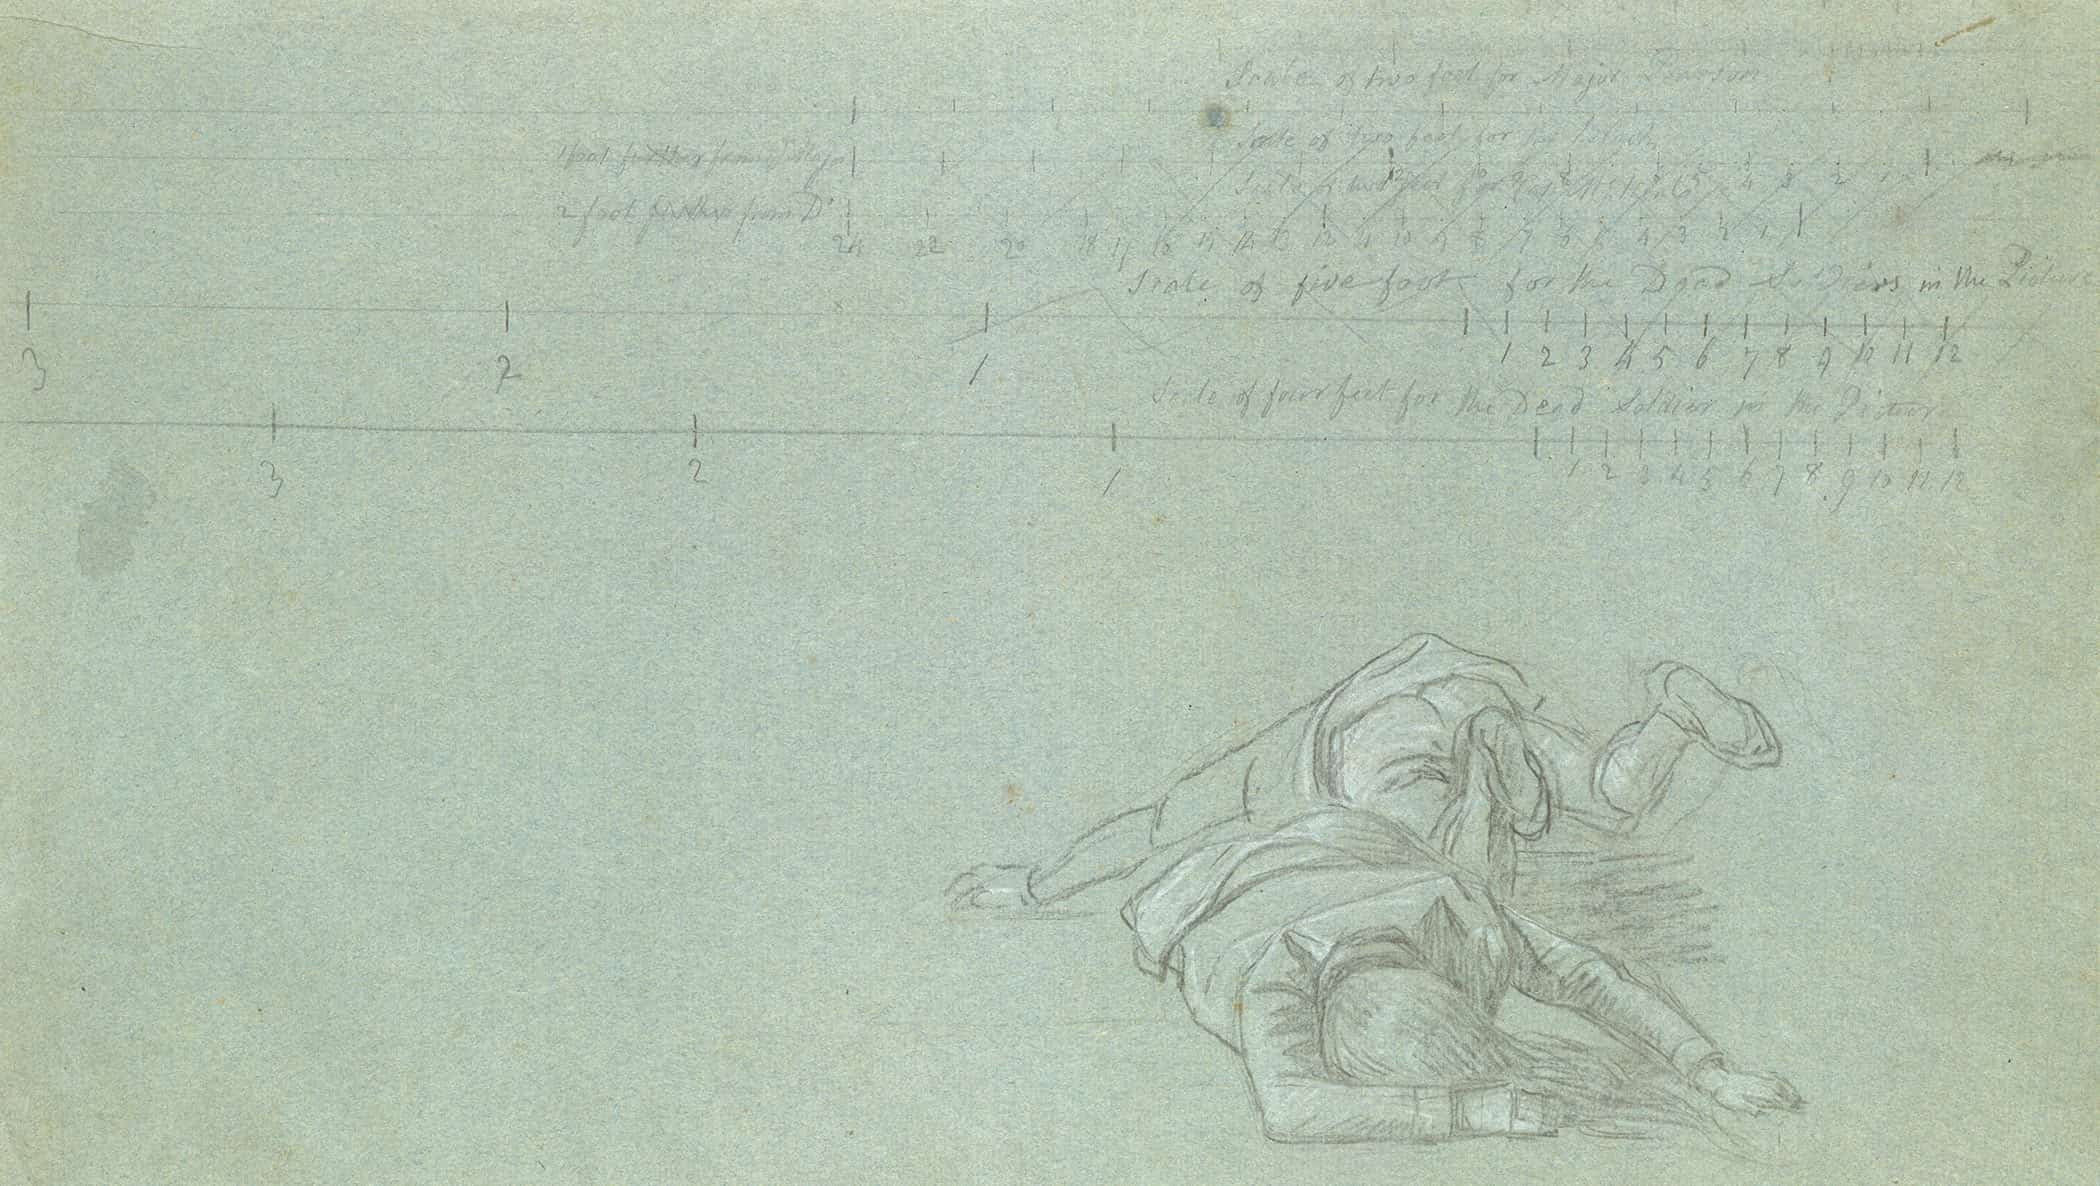 Scale of two feet for Major Pearson
Scale of two feet for the Black
1 foot further from y^e Major
Scale of two feet for
12 11 10 9 8 7 6 5 4 3 2 1
2 foot further from D^o
24 22 20 18 17 16 15 14 13 12 11 10 9 8 7 6 5 4 3 2 1
Scale of five foot for the Dead Soldiers in the Picture
3 2 1 1 2 3 4 5 6 7 8 9 10 11 12
Scale of four feet for the Dead Soldier in the Picture
3 2 1 1 2 3 4 5 6 7 8 9 10 11 12